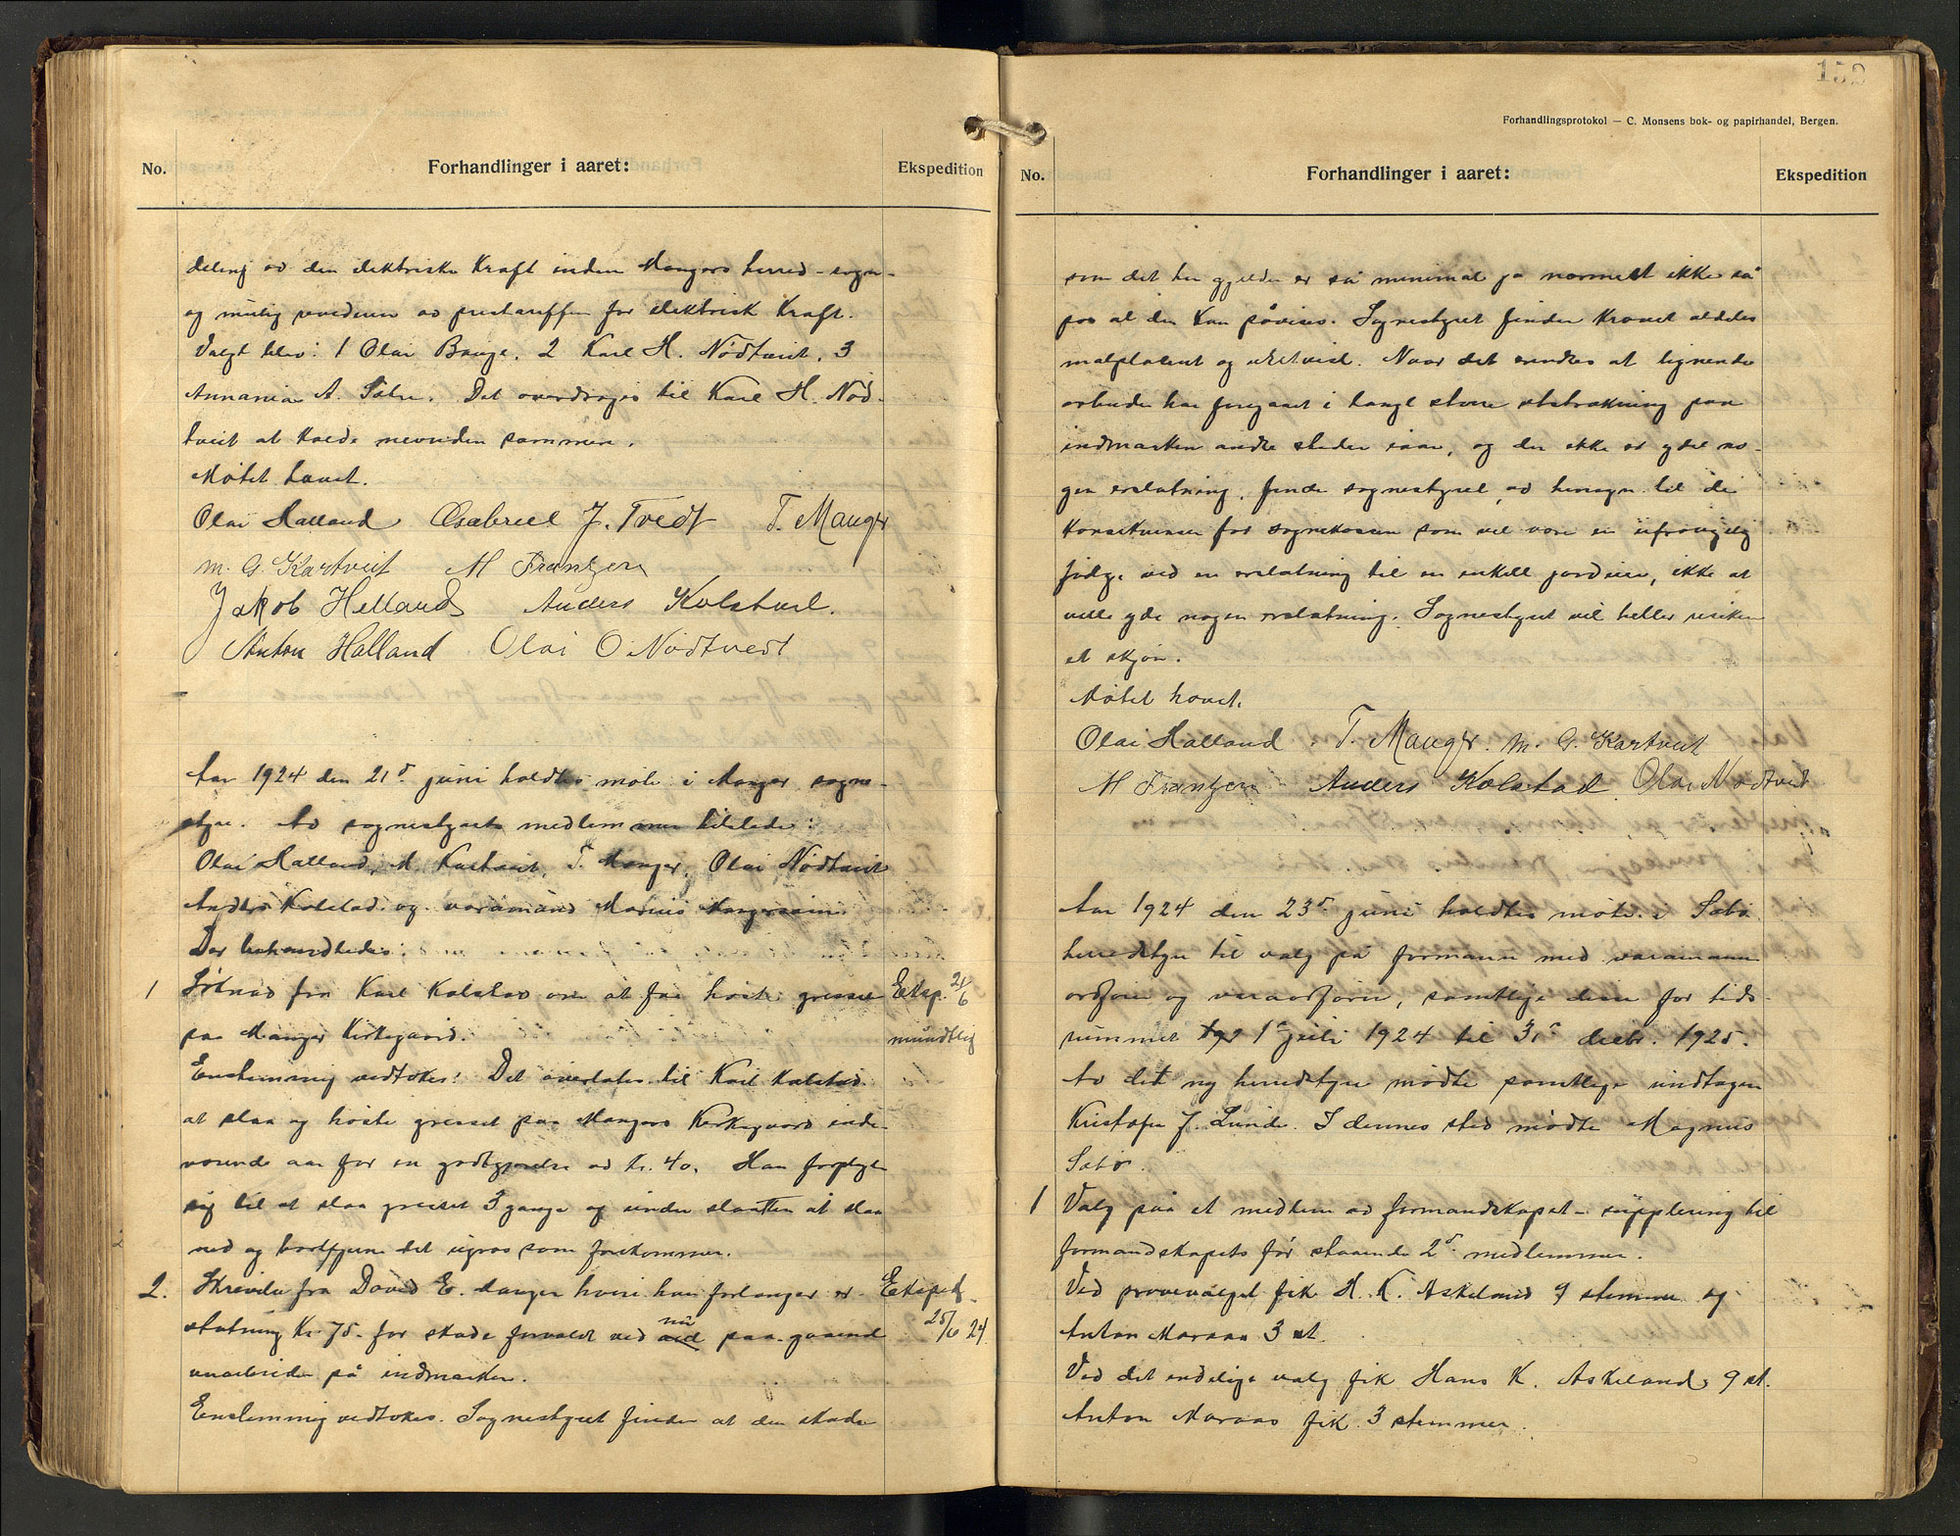 No.
Forhandlinger i aaret:
Ekspedition
deling av den elektriske Kraft inden Mangers herred-sogn-
og mulig revidering av pristariffen for elektrisk Kraft.
Valgt blev: 1 Olai Bauge, 2 Karl H. Nödtveit, 3
Annanias A. Sætre. Det overdrages til Karl H. Nöd-
tveit at kalde nevnden sammen.
Mötet hævet.
Olai Halland Gabriel J. Tvedt T. Manger
M. G. Kartveit M Frantzen
Jakob Helland Anders Kolstad.
Anton Halland Olai O Nödtvedt
Aar 1924 den 21de juni holdtes möte i Manger sogne-
styre. Av sognestyrets medlemmer tilstede:
Olai Halland, M. Kartveit, T. Manger, Olai Nödtveit
Anders Kolstad og varamand Marius Mangersnes
Der behandledes:
1 Söknad fra Karl Kolstad om at faa höste gresset Eksp. 24/6
paa Manger Kirkegaard. mundtlig
Enstemmig vedtokes: Det overlates til Karl Kolstad
at slaa og höste gresset paa Mangers Kirkegaard inde-
værende aar for en godtgjörelse av kr. 40. Han forpligter
sig til at slaa gresset 3 gange og under slaatten at slaa
ned og bortfjerne det ugras som forekommer.
2. Skrivelse fra David E. Manger hvori han forlanger er- Ekspd.
statning kr. 75.- for skade forvoldt ved nu ved paa-gaaende 25/6 24.
veiarbeide på indmarken.
Enstemmig vedtokes. Sognestyret finder at den skade
152
Forhandlingsprotokol — C. Monsens bok- og papirhandel, Bergen.
No.
Forhandlinger i aaret:
Ekspedition
som det her gjelder er så minimal ja normalt ikke så
pas at den kan påvises. Sognestyret finder kravet aldeles
malplaceret og uretvist. Naar det endes at lignende
arbeider har foregaaet i langt större utstrækning paa
indmarken andre steder iaar, og der ikke er ydet no-
gen erstatning, finder sognestyret, av hensyn til de
Konsekvenser for sognekassen som vil være en ufravigelig
fölge ved en erstatning til en enkelt jordeier, ikke at
ville yde nogen erstatning. Sognestyret vil heller risikere
et skjön.
Mötet hævet.
Olai Halland T. Manger. M. G. Kartveit
M Frantzen Anders Kolstad Olai Nödtveit
Aar 1924 den 23de juni holdtes möte i Sæbö
herredstyre til valg på formann med varamann
ordförer og varaordförer, samtlige disse for tids-
rummet 1ste juli 1924 til 31te decbr. 1925.
Av det ny herredstyre mödte samtlige undtagen
Kristofer J. Lunde. I dennes sted mödte Magnus
Sæbö.
1 Valg paa et medlem av formandskapet - supplering til
formandskapets för staaende 2de medlemmer.
Ved prövevalget fik H. K. Askeland 9 stemmer og
Anton Maraas 3 st.
Ved det endelige valg fik Hans K. Askeland 9 st.
Anton Maraas fik 3 stemmer.